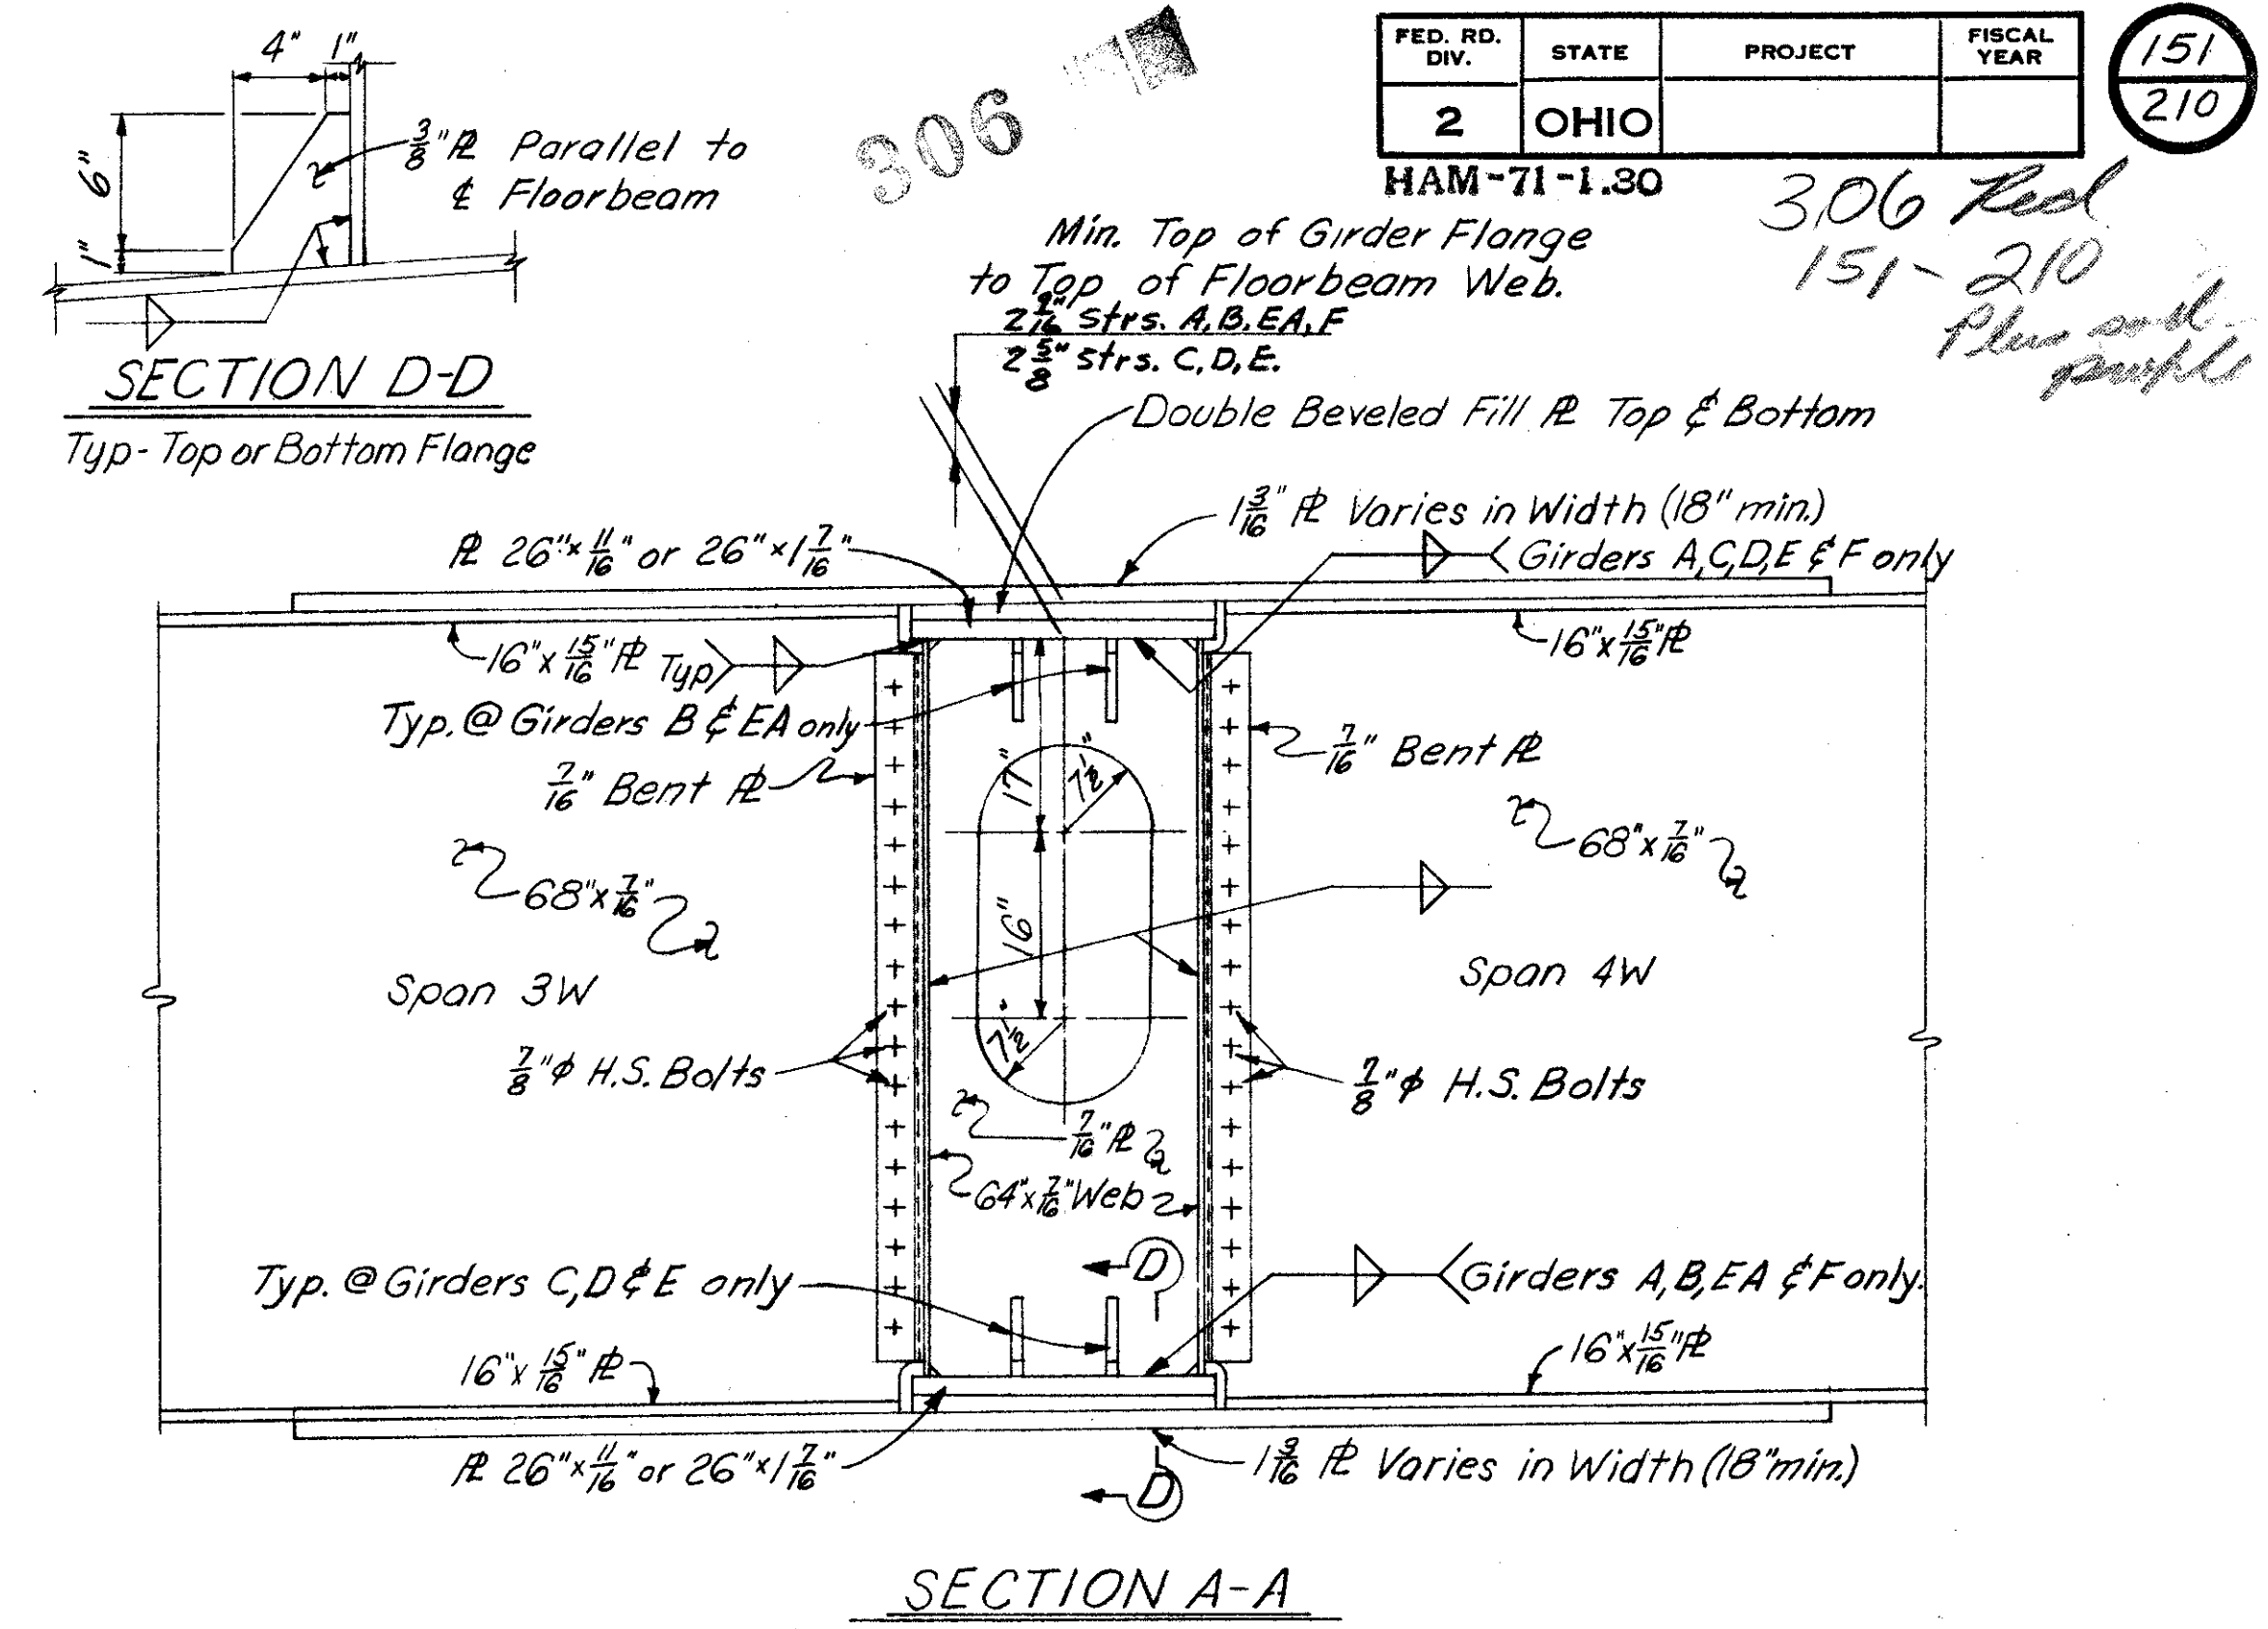 4" 1"
6"
1"
3/8" ℙ Parallel to
℄ Floorbeam
SECTION D-D
Typ-Top or Bottom Flange
306
FED. RD. DIV. STATE PROJECT FISCAL YEAR
2 OHIO
151
210
HAM-71-1.30
306 Red
151-210
Plus
Min. Top of Girder Flange
to Top of Floorbeam Web.
2 9/16" strs. A,B,EA,F
2 5/8" strs. C,D,E.
Double Beveled Fill ℙ Top & Bottom
1 3/16" ℙ Varies in Width (18" min.)
ℙ 26"x 11/16" or 26"x1 7/16"
Girders A,C,D,E & F only
16"x 15/16" ℙ
Typ
16"x 15/16" ℙ
Typ. @ Girders B & EA only
7/16" Bent ℙ
7/16" Bent ℙ
17"
7 1/2"
68"x 7/16"
68"x 7/16"
16"
Span 3W
Span 4W
7 1/2"
7/8"φ H.S. Bolts
7/8"φ H.S. Bolts
7/16" ℙ
64"x 7/16" Web
D
Typ. @ Girders C,D & E only
Girders A,B,EA & F only.
16"x 15/16" ℙ
16"x 15/16" ℙ
ℙ 26"x 11/16" or 26"x1 7/16"
D
1 3/16 ℙ Varies in Width (18"min.)
SECTION A-A